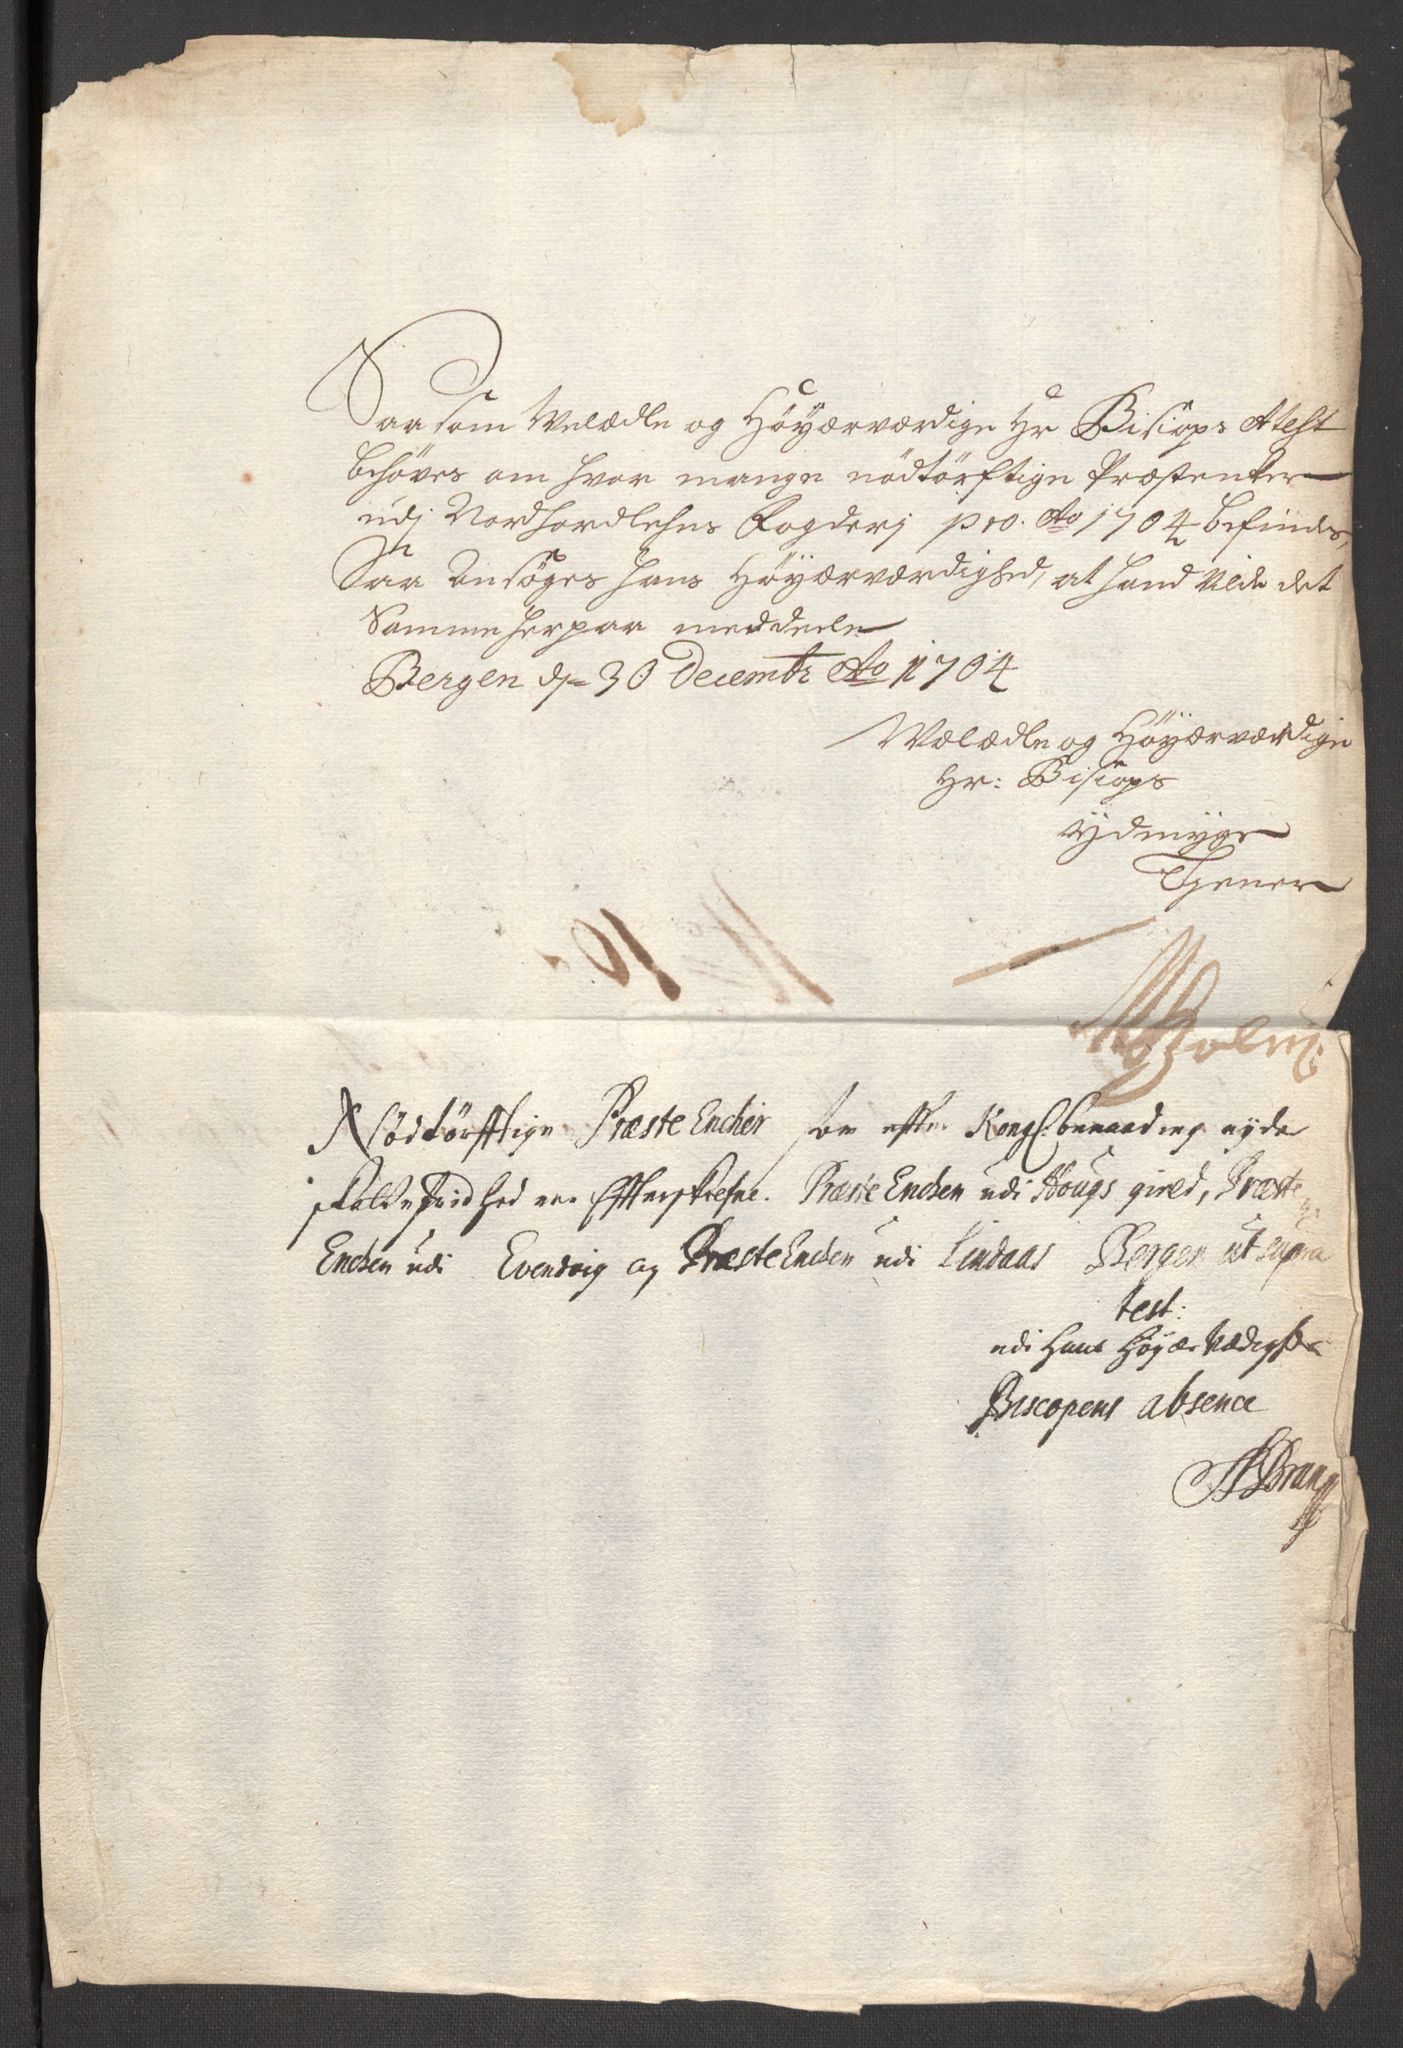 Saasom Velædle og Höÿærværdige Hr Bisiops Atest
behöves om hvor mange nödtörftige Præstenker
udj Nordhordlehns Fogderj pro. Ao 1704 befindes,
Saa Ansöges hans Höÿærværdighed, at hand vilde det
Samme herpaa meddeele
Bergen d 30 Decembr Ao 1704
Wælædle og Höÿærværdige
Hr: Bisiops
ydmyge
Tjener
No 10
Nödtörfftige Præste Encher som efter Kongl: benaading nyde
skatte frid hed ere Efterskrefne. Præste Enchen udi Hougs gield, Præste
Enchen udi Evendvig og Præste Enchen udi Lindaas Bergen ut supra
test:
udi Hans Höyær Værdigheds
Biscopens absence